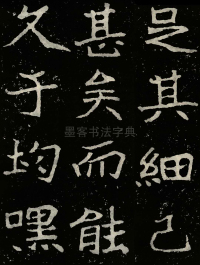 足其細己
甚矣而能
久于均嘿
墨客书法字典